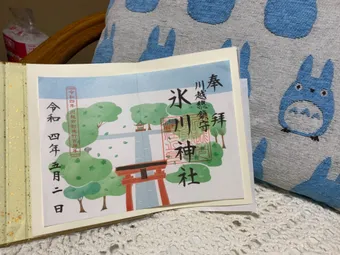 奉拝
川越総鎮守
氷川神社
令和四年五月二日